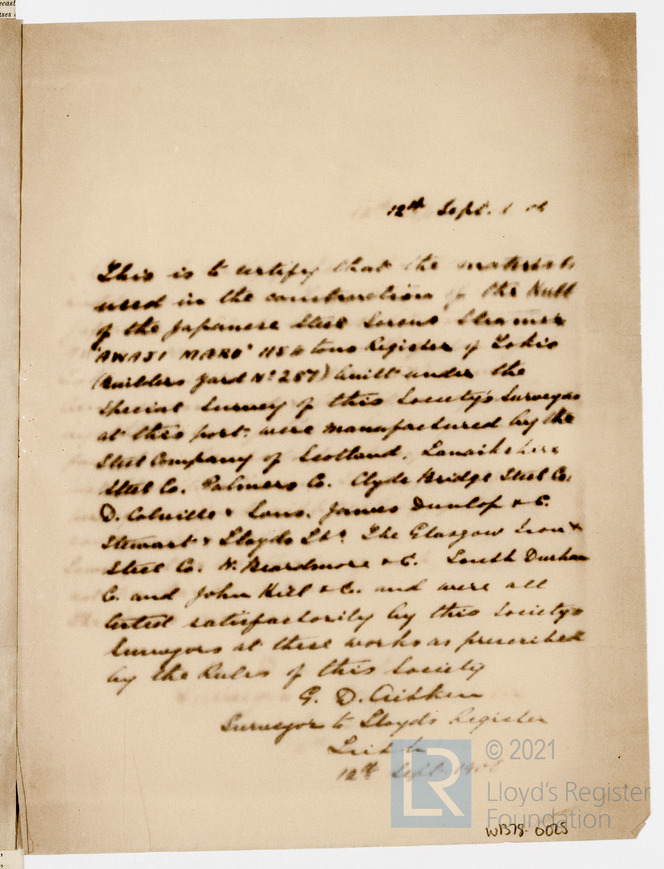 12th Sept. 1 06
This is to certify that the materials
used in the construction of the Hull
of the Japanese Steel Screw Steamer
"AWAJI MARU" 1154 tons Register of Tokio
(Builders Yard No 287) built under the
Special Survey of this Society's Surveyors
at this port, were manufactured by the
Steel Company of Scotland, Lanarkshire
Steel Co. Palmers Co. Clyde Bridge Steel Co.
D. Colville & Sons. James Dunlop & C.
Stewart & Lloyds Ltd. The Glasgow Iron &
Steel Co. W. Beardmore & C. South Durham
C. and John Hill & Co. and were all
tested satisfactorily by this Society's
Surveyors at these works as prescribed
by the Rules of this Society
G. D. Aitken
Surveyor to Lloyd's Register
Leith
12th Sept. 1906
LR
© 2021
Lloyd's Register
Foundation
W1378-0025